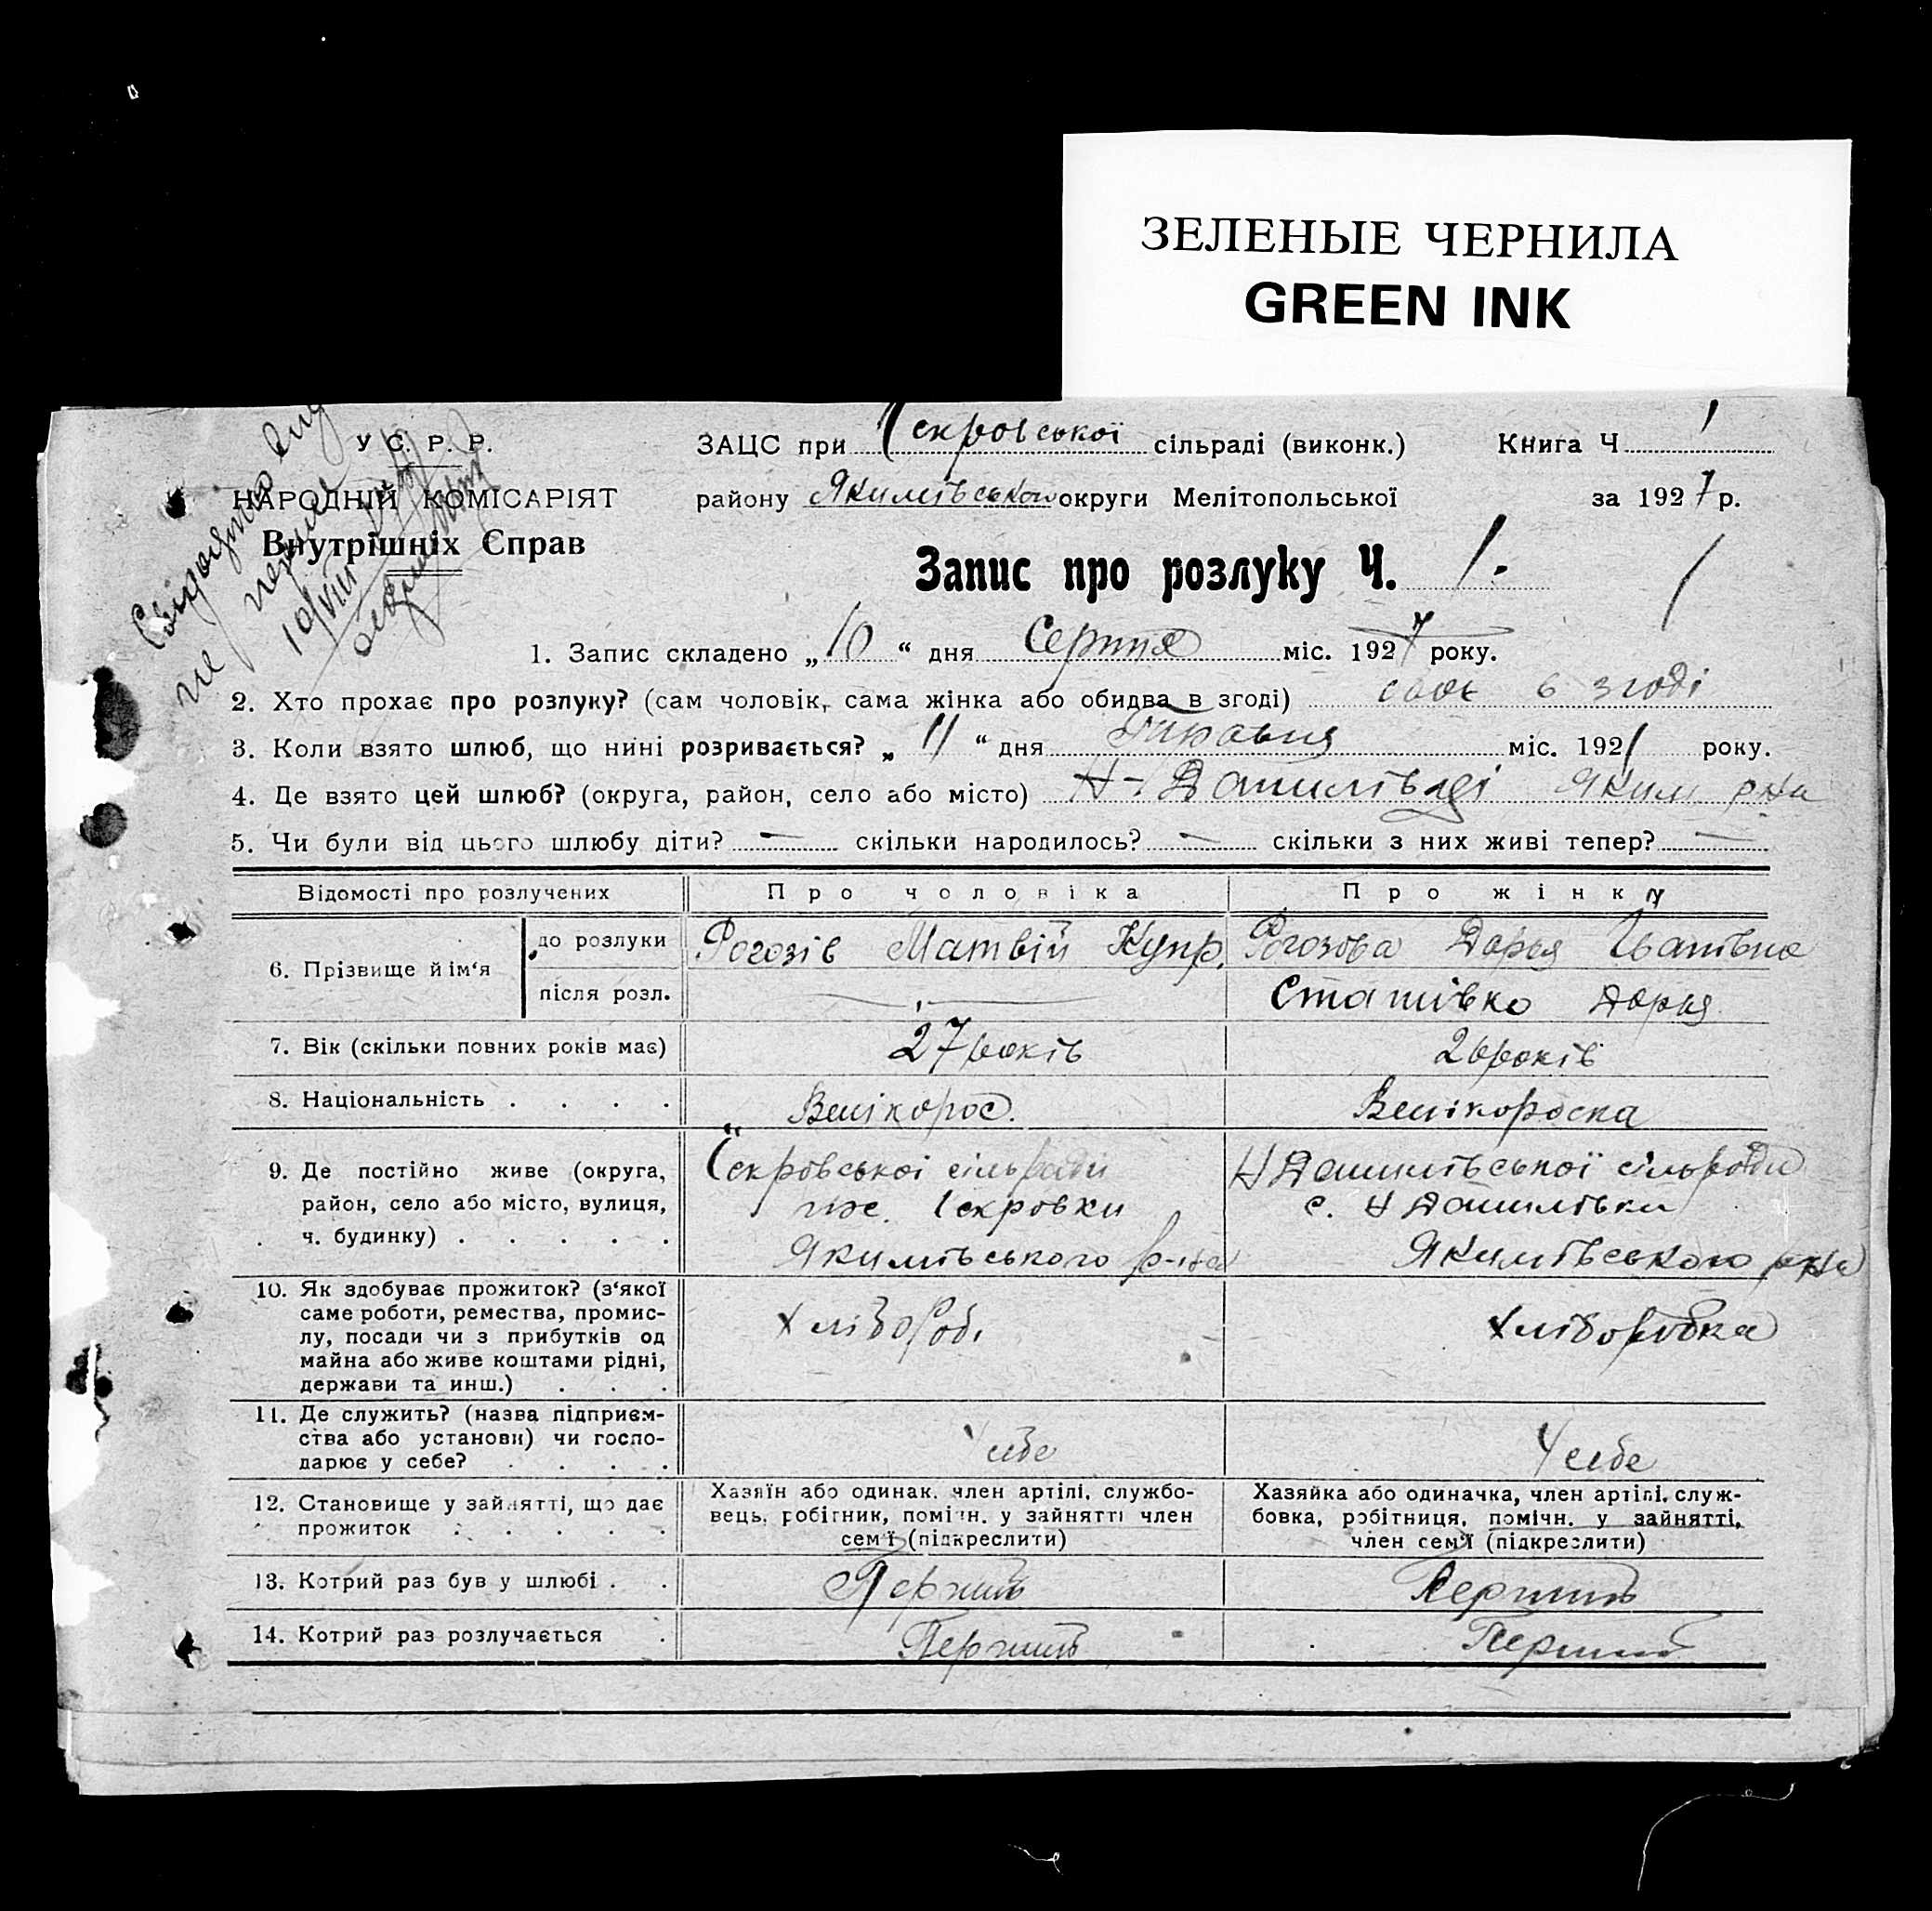 ЗЕЛЕНЫЕ ЧЕРНИЛА
GREEN INK
У С. Р. Р.
НАРОДНІЙ КОМІСАРІЯТ
Внутрішніх Справ
ЗАЦС при Іскровської сільраді (виконк.) Книга Ч 1
району Якимівського округи Мелітопольської за 1927 р.
Запис про розлуку Ч. 1.
1. Запис складено „10“ дня Серпня міс. 1927 року.
2. Хто прохає про розлуку? (сам чоловік, сама жінка або обидва в згоді) в згоді
3. Коли взято шлюб, що нині розривається? „11“ дня Травня міс. 1921 року.
4. Де взято цей шлюб? (округа, район, село або місто) Н-Данилівці Яким рна
5. Чи були від цього шлюбу діти? — скільки народилось? — скільки з них живі тепер? —
Відомості про розлучених Про чоловіка Про жінку
6. Прізвище й ім‘я
до розлуки Рогозів Матвій Купр. Рогозова Дарья Іванівна
після розл. — Статівко Дарья
7. Вік (скільки повних років має) 27 років 26 років
8. Національність . . . . Велікорос. Велікороска
9. Де постійно живе (округа, район, село або місто, вулиця, ч. будинку) . . . . .
Іскровської сільради
Іскровки
Якимівського р-на
Н Данилівської сільради
с. Н Данилівки
Якимівського рна
10. Як здобуває прожиток? (з‘якої
саме роботи, ремества, промис-
лу, посади чи з прибутків од
майна або живе коштами рідні,
держави та инш.) . . .
Хлібороб. Хліборобка
11. Де служить? (назва підприєм-
ства або установи) чи госпо-
дарює у себе? . . . .
У себе У себе
12. Становище у зайнятті, що дає
прожиток . . . . .
Хазяїн або одинак, член артілі, службо-
вець, робітник, помічн. у зайнятті член
сем‘ї (підкреслити)
Хазяйка або одиначка, член артілі, служ-
бовка, робітниця, помічн. у зайнятті,
член сем‘ї (підкреслити)
13. Котрий раз був у шлюбі . . Перший Перший
14. Котрий раз розлучається . Перший Перший